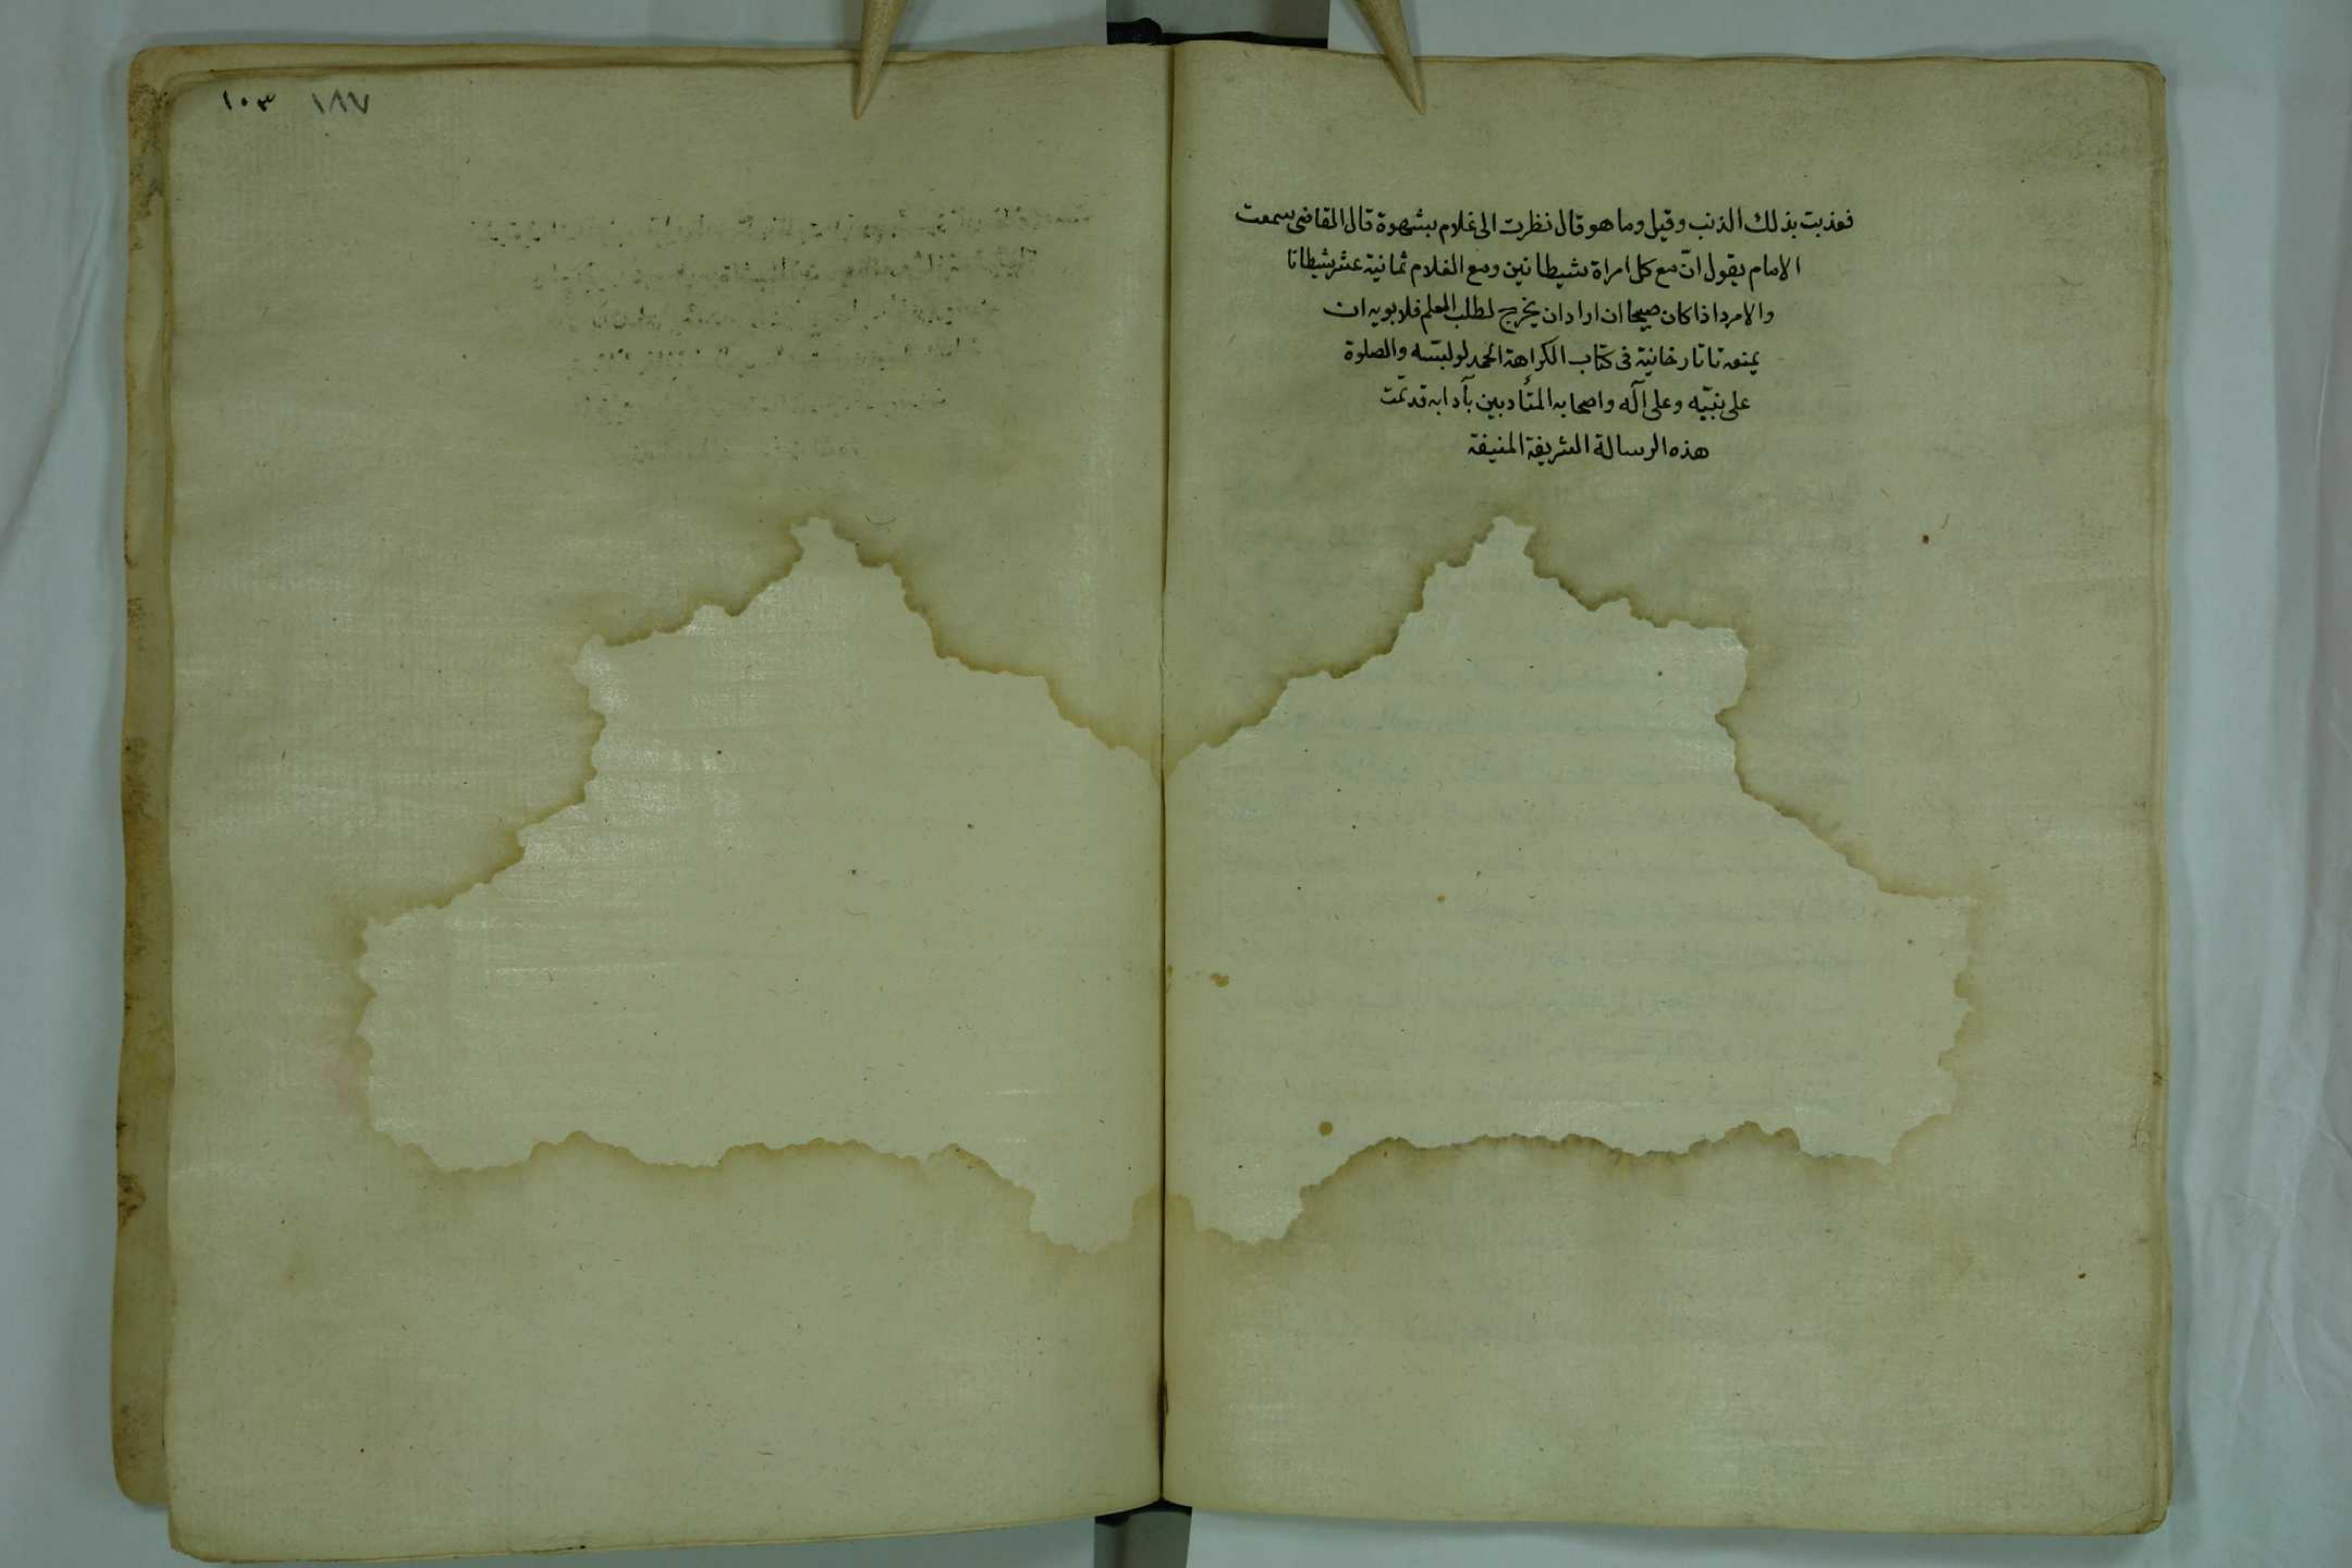 فعذبت بذلك الذنب وقيل وما هو قال نظرت الى غلام بشهوة قال القاضى سمعت
الامام يقول انّ مع كل امراة شيطانين ومع الغلام ثمانية عشر شيطانا
والامرد اذا كان صبيحا ان اراد ان يخرج لطلب العلم فلابويه ان
يمنعه تاتارخانية فى كتاب الكراهة الحمد لوليه والصلوة
على نبيّه وعلى آله واصحابه المتأدبين بآدابه قد تمّت
هذه الرسالة الشريفة المنيفة
١٠٣ ١٨٧